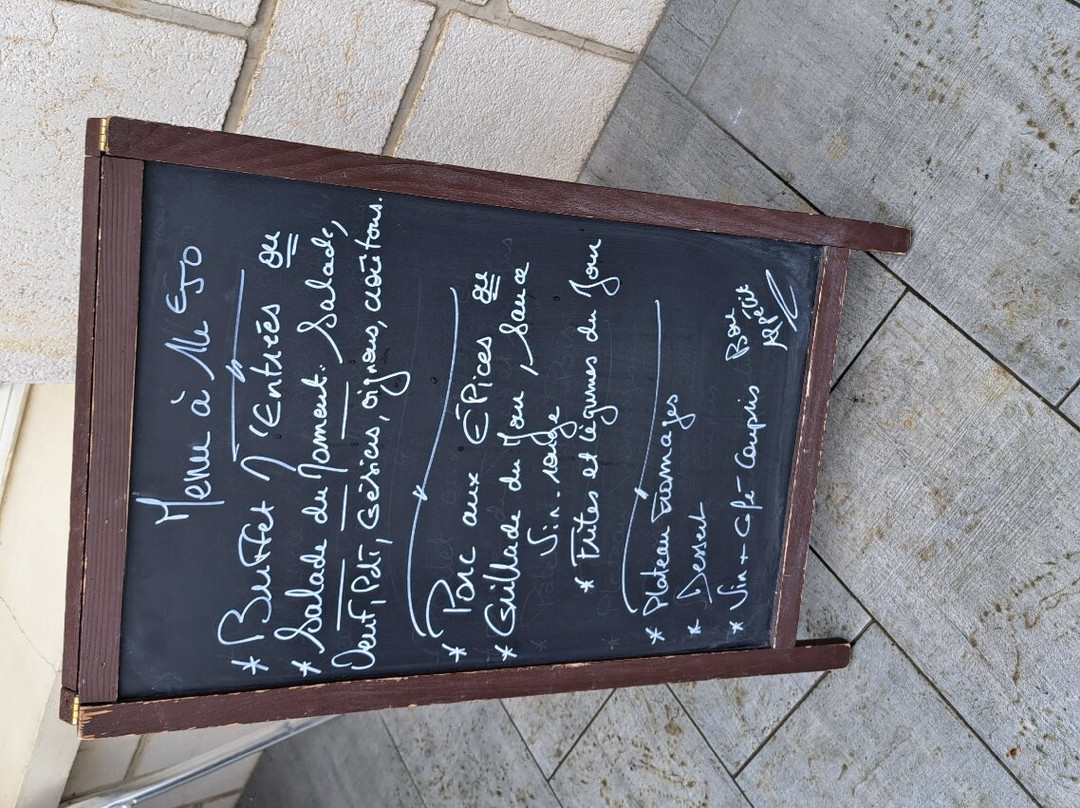 Menu à 14€50
* Buffet d'Entrées ou
* Salade du Moment: Salade,
Oeuf, Pdt, Gésiers, oignons, croûtons.
* Porc aux Épices ou
* Grillade du Jour, Sauce
Vin rouge
* Frites et légumes du Jour
* Plateau Fromages
* Dessert
* Vin + Café Compris
Bon
Appétit